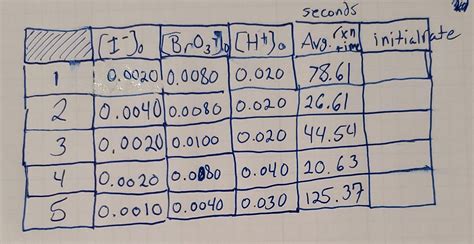 seconds
[I⁻]₀ [BrO₃⁻]₀ [H⁺]₀ Avg. rxn time initial rate
1 0.0020 0.0080 0.020 78.61
2 0.0040 0.0080 0.020 26.61
3 0.0020 0.0100 0.020 44.54
4 0.0020 0.0080 0.040 20.63
5 0.0010 0.0040 0.030 125.37